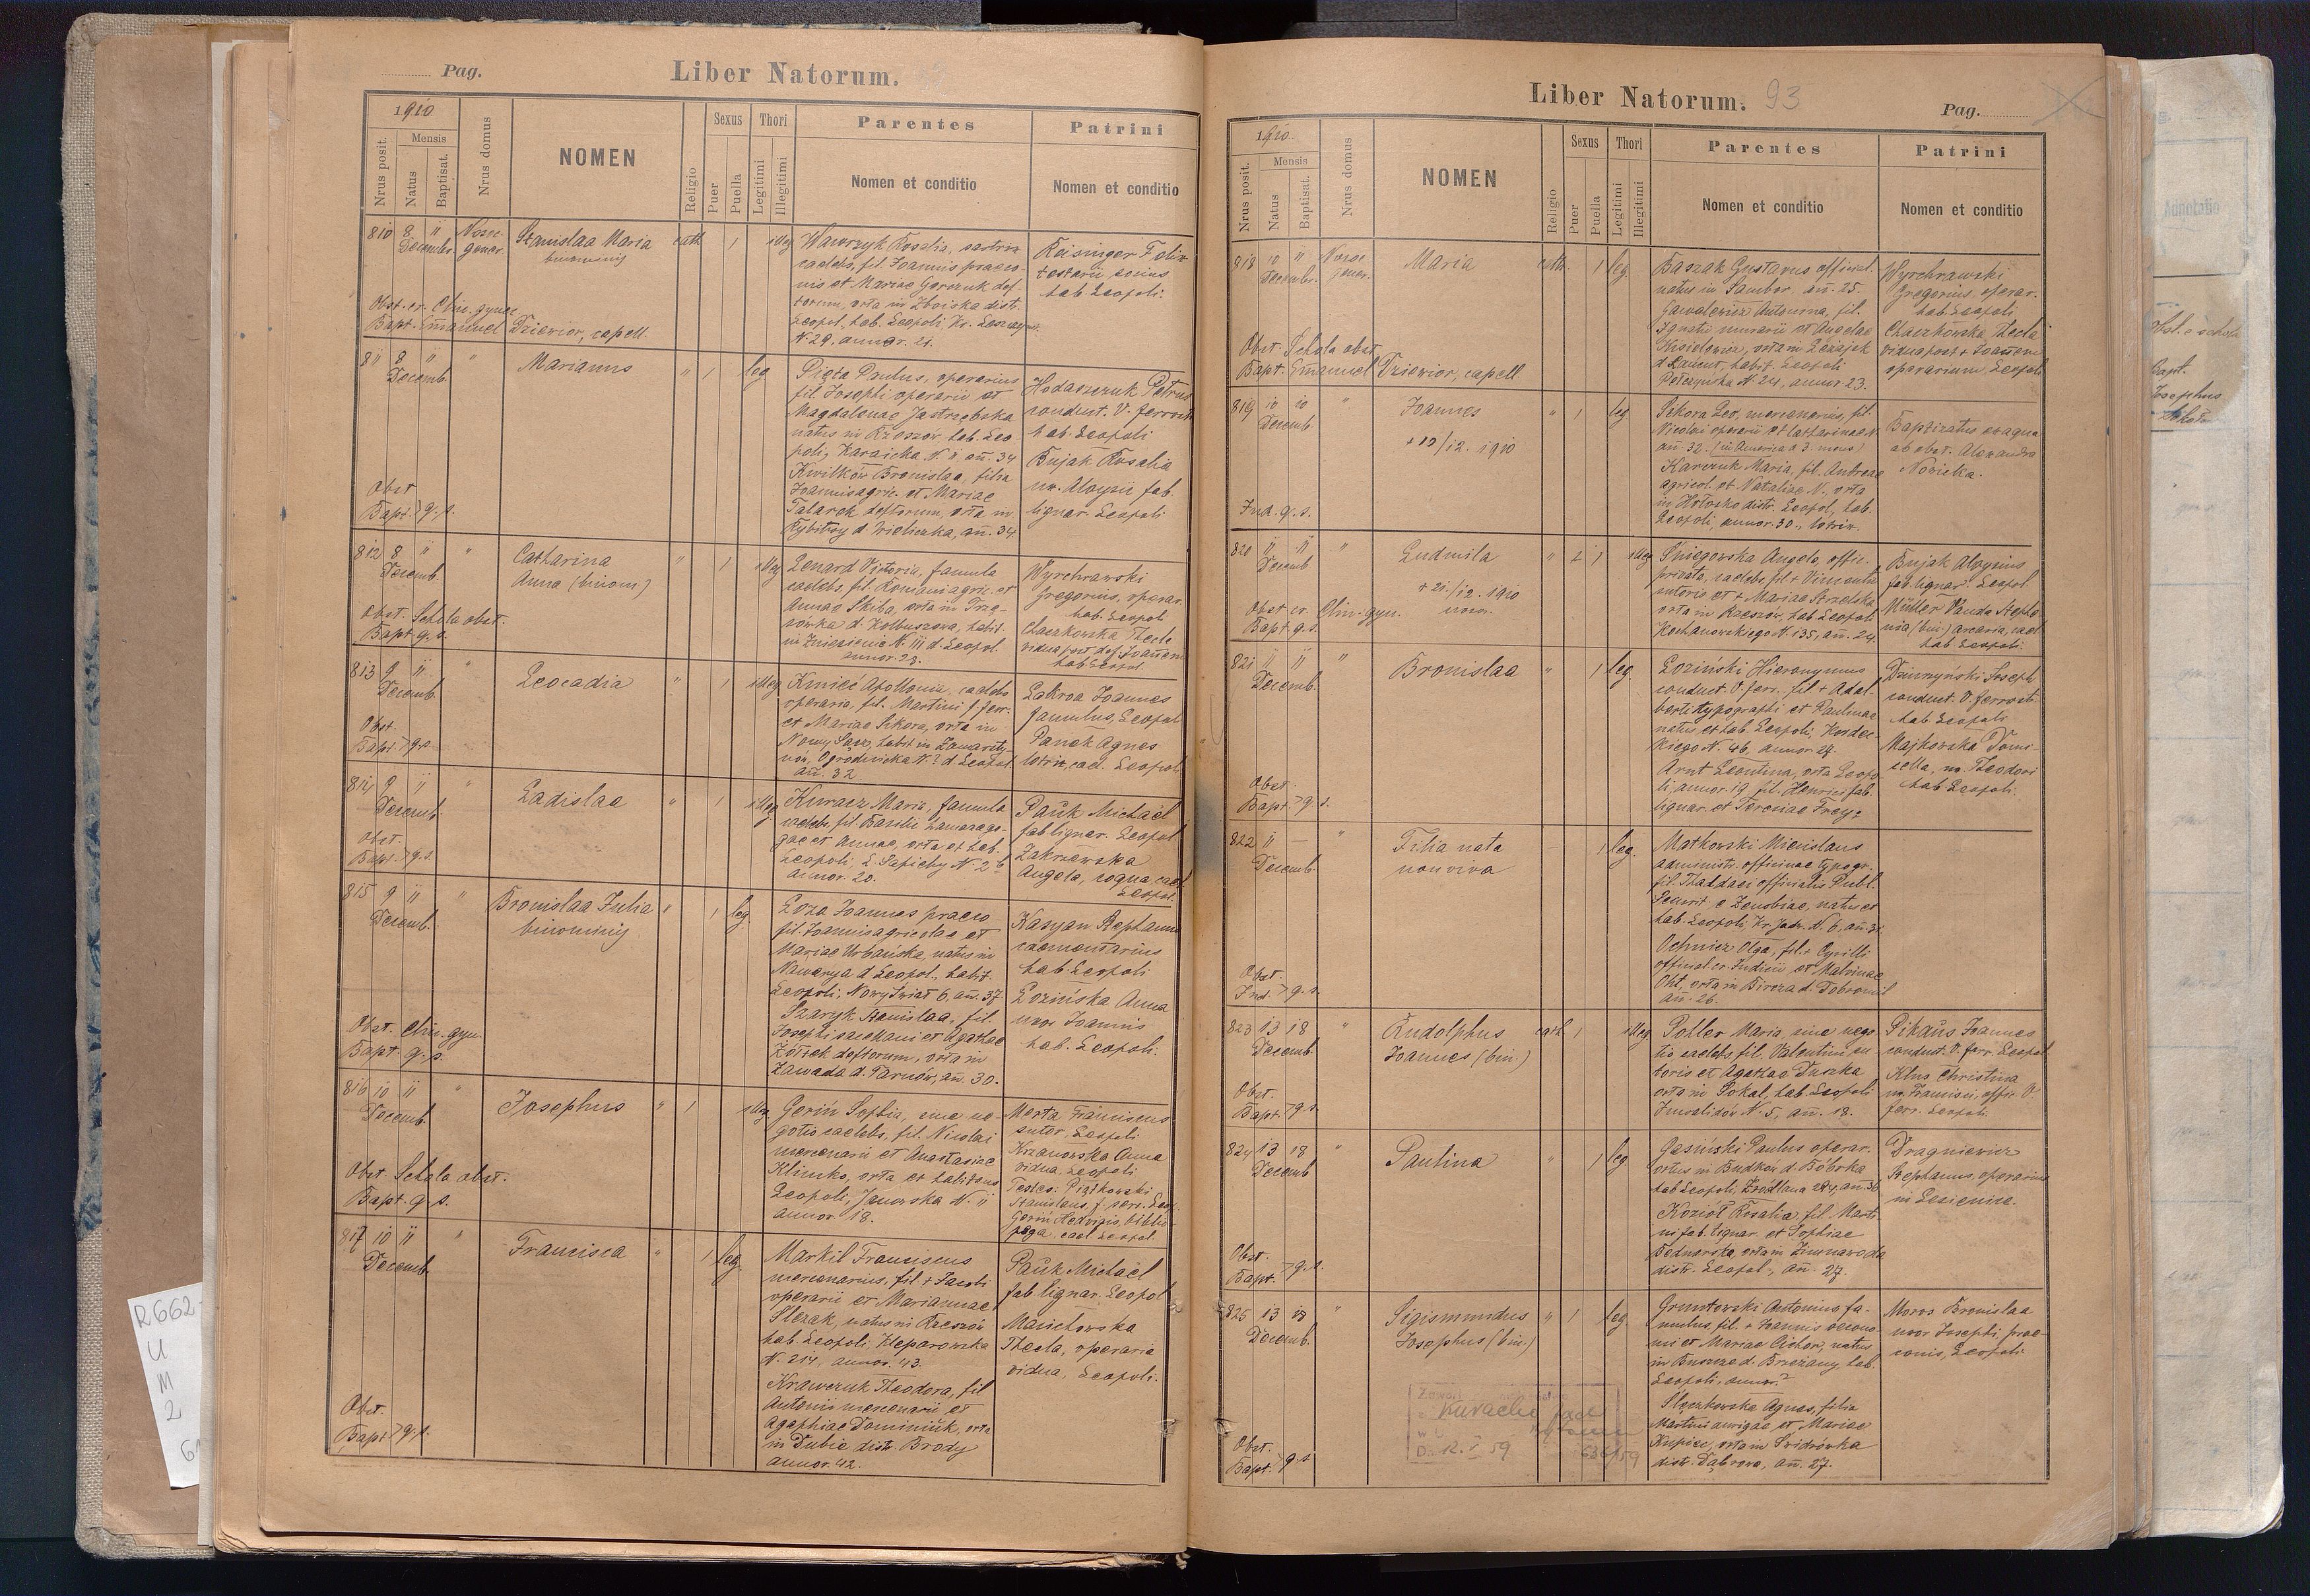 Pag.
Liber Natorum.
1910
Nrus posit.
Mensis
Natus
Baptisat.
Nrus domus
NOMEN
Religio
Sexus
Puer
Puella
Thori
Legitimi
Illegitimi
Parentes
Nomen et conditio
Patrini
Nomen et conditio
810 8 11
Decembr.
Stanislaa Maria
binominis
cath 1 illeg
Wawrzyk Rosalia,
caelebs, fil. Joannis praeco-
nis et Mariae
orta in Zboiska dist.
Leopol, hab. Leopoli
N. 29, annor. 21.
Reisinger Felix
hab. Leopoli.
Obst. er. Clin. gynec.
Bapt. Emanuel Dziewior, capell.
811 8 11 "
Decemb.
Mariannus
" 1 leg
Pięta Paulus, operarius
fil. Josephi operarii et
Magdalenae Jastrzębska
natus in Rzeszów hab. Leo
poli, Karaicka N. 11 an. 34
Kwilków Bronislaa, filia
Joannis agric. et Mariae
Talarek orta in
d. Wieliczka, an. 34.
Hodaszczuk Petrus
conduct. V. ferrost
hab. Leopoli
Bujak Rosalia
ux. Aloysii fab.
lignar. Leopoli
Obst.
Bapt. q. s.
812 8 11 "
Decemb.
Catharina
Anna (binom)
" 1 illeg
Lenard Victoria, famula
caelebs, fil. Romani agric. et
Annae Skiba, orta in Trze-
sówka d. Kolbuszowa, habit.
in Zniesienie N. 111 d. Leopol.
annor. 23.
Wyrchrawski
Gregorius, operar.
hab. Leopol
Chaczkowska Thecla
vidua post def. Joannem
hab. Leopol.
Obst. Schola obst.
Bapt q. s.
813 9 11 "
Decemb.
Leocadia
" 1 illeg
Kmieć Apollonia, caelebs
operaria, fil. Martini f. ferr.
et Mariae Sikora, orta in
Nowy Sącz, habit in Zamarsty-
nów, Ogrodnicka N. ? d Leopol.
an. 32
Joannes
famulus, Leopol
Panek Agnes
lotrix, cael. Leopoli
Obst.
Bapt. q. s.
814 9 11 "
Decemb.
Ladislaa
" 1 illeg
Kuracz Maria, famula
caelebs, fil. Basilii
et Annae, orta et hab.
Leopoli, L. Sapiehy N. 2 b
annor. 20.
Pauk Michael
fab. lignar. Leopol.
Zakrzewska
Angela, coqua, cael.
Leopol.
Obst.
Bapt. q. s.
815 9 11 "
Decemb.
Bronislaa Julia
binominis
" 1 leg
Łoza Joannes praeco
fil. Joannis agricolae et
Mariae Urbańska, natus in
Nawarya d Leopol., habit.
Leopoli, Nowy Świat 6, an. 37
Szaryk Stanislaa, fil.
Josephi et Agathae
Żółtek orta in
Zawada d. Tarnów, an. 30.
Kasyan Stephanus
caementarius
hab. Leopoli
Łozińska Anna
uxor Joannis
hab. Leopoli.
Obst. Clin. gyn.
Bapt. q. s.
816 10 11 "
Decemb.
Josephus
" 1 illeg
Gerin Sophia, sine ne-
gotio caelebs, fil. Nicolai
mercenarii et Anastasiae
Klimko, orta et habitans
Leopoli, Janowska N. 11
annor 18.
Merta Franciscus
sutor, Leopoli
Krzanowska Anna
vidua, Leopoli
Testes: Piątkowski
Stanislaus, f. ferr. Leop.
Gerin Hedvigis, biblio-
pega, cael Leopol
Obst. Schola obst.
Bapt. q. s.
817 10 11 "
Decemb.
Francisca
" 1 leg.
Markil Franciscus
mercenarius, fil + Jacobi
operarii et Mariannae
Ślezak, natus in Rzeszów
hab. Leopoli, Kleparowska
N. 214, annor. 43.
Krawczuk Theodora, fil
Antonii mercenarii et
Agaphiae Dominiuk, orta
in Dubie distr. Brody
annor. 42.
Pauk Michael
fab. lignar. Leopol
Thecla, operaria
vidua, Leopoli.
Obst.
Bapt. q. s.
Liber Natorum. 93
Pag.
1910
Nrus posit.
Mensis
Natus
Baptisat.
Nrus domus
NOMEN
Religio
Sexus
Puer
Puella
Thori
Legitimi
Illegitimi
Parentes
Nomen et conditio
Patrini
Nomen et conditio
818 10 11
Decembr.
Maria
cath. 1 leg.
Baszak Gustavus official.
natus in Sambor. an. 25.
Gawalewicz Antonina, fil.
Ignatii murarii et Angelae
Kisielewicz, orta in Leżajsk
d Łańcut, habit. Leopoli
N. 24, annor. 23.
Wyrchrawski
Gregorius, operar.
hab. Leopoli
Chaczkowska Thecla
vidua post + Joannem
operarium, Leopoli
Obst. Schola obst.
Bapt. Emanuel Dziewior, capell
819 10 10 "
Decemb.
Joannes
+ 12/12. 1910
" 1 leg
Sikora Leo, mercenarius, fil.
Nicolai operarii et Catharinae N.
an. 32. (in America a 3. mens)
Karczuk Maria, fil. Andreae
agricol. et Nataliae N., orta
in Hołosko distr. Leopol, hab.
Leopoli, annor. 30., lotrix.
Baptizatus ex aqua
ab obst. Alexandra
Nowicka.
Ind. q. s.
820 11 11 "
Decemb
Ludmila
+ 21/12. 1910
" 1 illeg
Śniegowska Angela, offic.
privata, caelebs fil + Vincentii
sutoris et + Mariae Strzelska
orta in Rzeszów, hab. Leopoli
Kochanowskiego N. 135, an. 24.
Bujak Aloysius
fab. lignar. Leopol.
Müller Vanda Stepha
nia (bin) arcaria, cael
hab. Leopoli.
Obst. er. Clin. gyn.
Bapt. q. s.
821 11 11 "
Decemb.
Bronislaa
" 1 leg.
Łoziński Hieronymus
conduct. V. ferr. fil + Adal-
berti typographi et Paulinae
natus et hab Leopoli, Kordec-
kiego N. 46, annor. 27.
Arnt Leontina, orta Leopo
li, annor. 19 fil. Henrici fab.
lignar. et Teresiae Frey
Joseph
conduct. V. ferrost.
hab Leopoli
Majkowska Domi
cella, ux. Theodori
hab Leopoli.
Obst.
Bapt. q. s.
822 11 — "
Decemb.
Filia nata
non viva
— 1 leg.
Matkowski Mieczislaus
administr. officinae typogr.
fil. Thaddaei officialis Publ.
Securit. et Zenobiae, natus et
hab. Leopoli, Kr. Jadw. N. 6, an. 31.
Ochnicz Olga, fil. + Cyrilli
official. et Malvinae
Ohl, orta in Bircza d. Dobromil
an. 26.
Obst.
Ind. q. s.
823 13 18 "
Decemb.
Rudolphus
Joannes (bin.)
cath 1 illeg
Poller Maria sine nego
tio caelebs fil. Valentini su-
toris et Agathae Duszka
orta in Sokal, hab. Leopoli
Inwalidów N. 5, an. 18.
Pikaus Joannes
conduct. V. ferr. Leopol
Klus Christina
ux. Francisci, offic. V.
ferr. Leopoli.
Obst.
Bapt. q. s.
824 13 18 "
Decemb
Paulina
" 1 leg
Gasiński Paulus operar.
ortus in Budków d. Bóbrka
hab Leopoli, Źródlana 28
Kozioł Rosalia, fil. Marti
ni fab. lignar. et Sophiae
Bednarska, orta in Zimnawoda
distr. Leopol., an. 27.
Dragniewicz
Stephanus, operarius
in Lesienice.
Obst.
Bapt. q. s.
825 13 "
Decemb.
Sigismundus
Josephus (bin)
" 1 leg.
Gruntowski Antonius, fa-
mulus, fil. + Joannis oecono-
mi et Mariae Cichor, natus
in d. Brzeżany, hab.
Leopoli, annor. ?
Ślęczkowska Agnes, filia
Martini aurigae et Mariae
Kupiec, orta in Swidrówka
distr. Dąbrowa, an. 27.
Moros Bronislaa
uxor Josephi, prae-
conis, Leopoli.
Obst.
Bapt. q. s
12. V 59
R 662
U
M
2
Adnotatio
Bapt.
Josephus